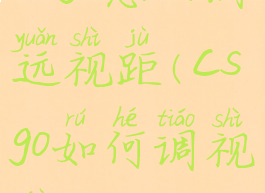 yuǎn shì jù
远视距(CS
rú hé tiáo shì
go如何调视